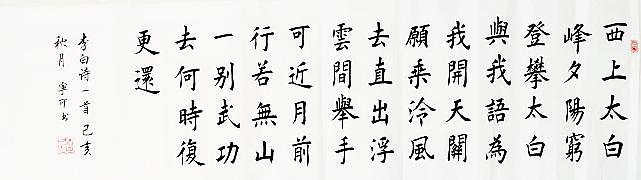 西上太白
峰夕陽窮
登攀太白
與我語為
我開天關
願乘泠風
去直出浮
雲間舉手
可近月前
行若無山
一别武功
去何時復
更還
李白诗一首己亥
秋月寧可书